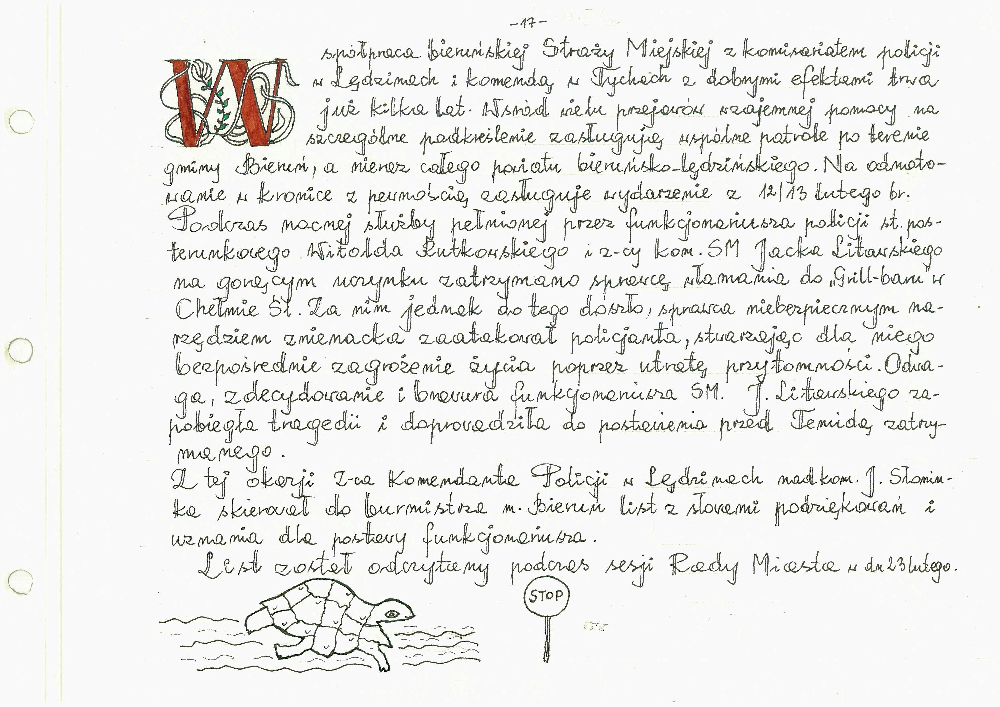 -17-
Współpraca bieruńskiej Straży Miejskiej z komisariatem policji
w Lędzinach i komendą w Tychach z dobrymi efektami trwa
już kilka lat. Wśród wielu przejawów wzajemnej pomocy na
szczególne podkreślenie zasługują wspólne patrole po terenie
gminy Bieruń, a nieraz całego powiatu bieruńsko-lędzińskiego. Na odnoto-
wanie w kronice z pewnością zasługuje wydarzenie z 12/13 lutego br.
Podczas nocnej służby pełnionej przez funkcjonariusza policji st. pos-
terunkowego Witolda Rutkowskiego i z-cy kom. SM Jacka Litawskiego
na gorącym uczynku zatrzymano sprawcę włamania do „Grill-baru" w
Chełmie Śl. Za nim jednak do tego doszło, sprawca niebezpiecznym na-
rzędziem znienacka zaatakował policjanta, stwarzając dla niego
bezpośrednie zagrożenie życia poprzez utratę przytomności. Odwa-
ga, zdecydowanie i brawura funkcjonariusza SM. J. Litawskiego za-
pobiegła tragedii i doprowadziła do postawienia przed Temidą zatrzy-
manego.
Z tej okazji Z-ca Komendanta Policji w Lędzinach nadkom. J. Słomin-
ka skierował do burmistrza m. Bieruń list z słowami podziękowań i
uznania dla postawy funkcjonariusza.
List został odczytany podczas sesji Rady Miasta w dn 23 lutego.
STOP